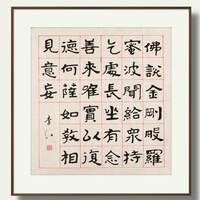 佛說金剛般羅
蜜波聞給衆持
乞處長坐有念
善來難實以復
德何薩如教相
見意妄